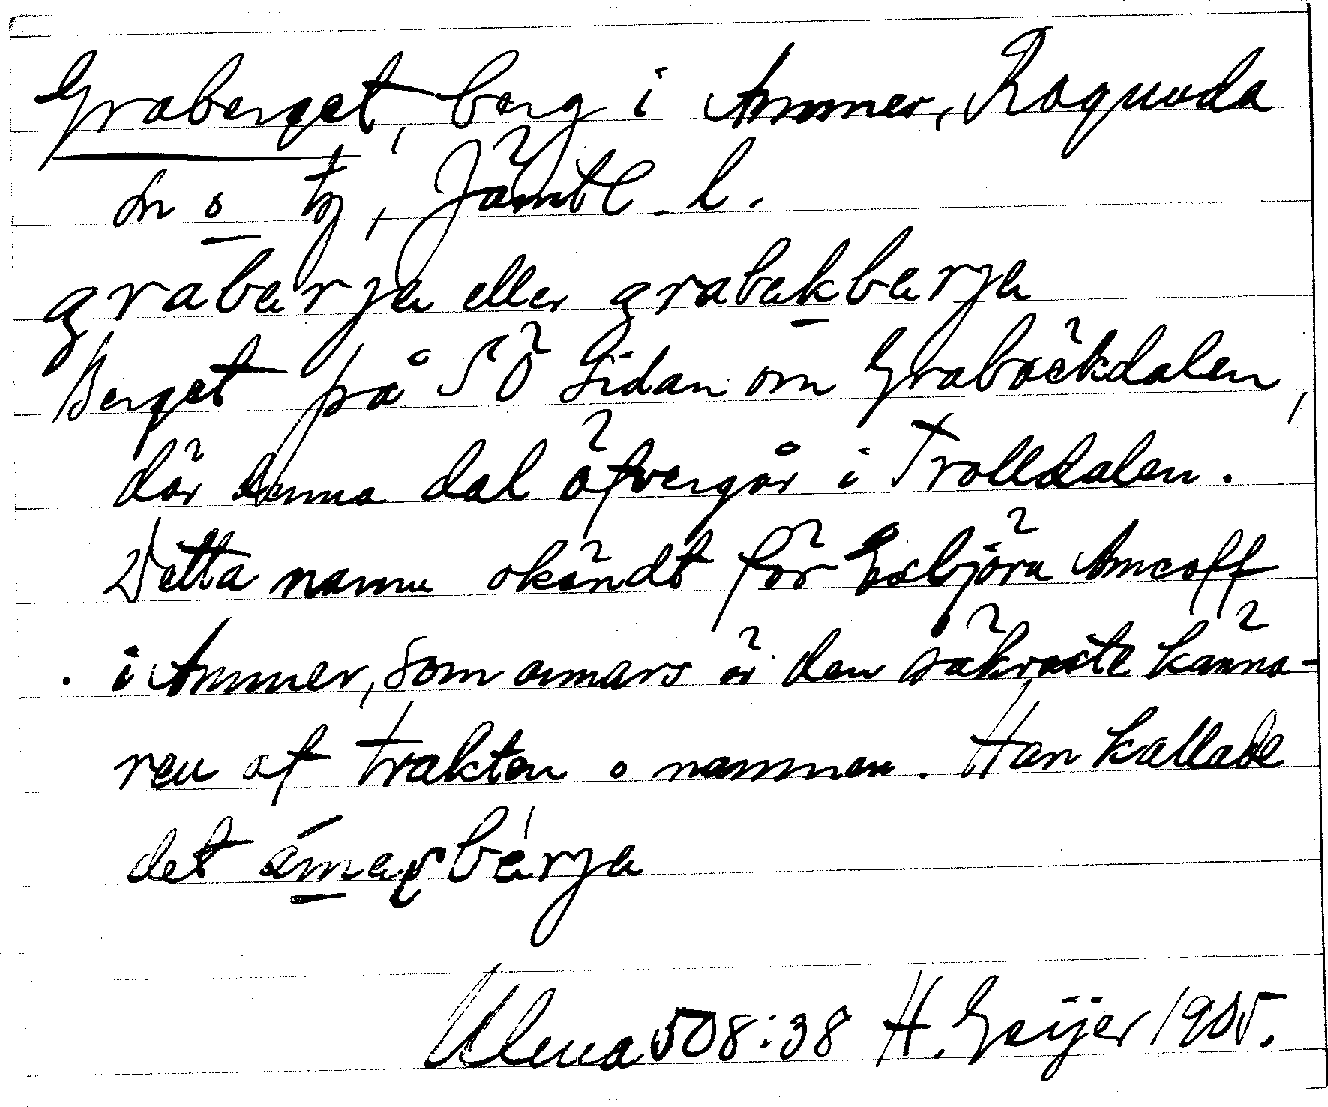 Graberget, berg i Ammer, Ragunda
sn o tg, Jämtl. l.
grabærja eller grabækbærja
Berget på SÖ sidan om Grabäckdalen,
där denna dal öfvergår i Trolldalen.
Detta namn okändt för Esbjörn Amcoff
i Ammer, som annars är den säkraste känna-
ren af trakten o namnen. Han kallade
det ámarbærja
Ulma 508:38 H. Geijer 1905.